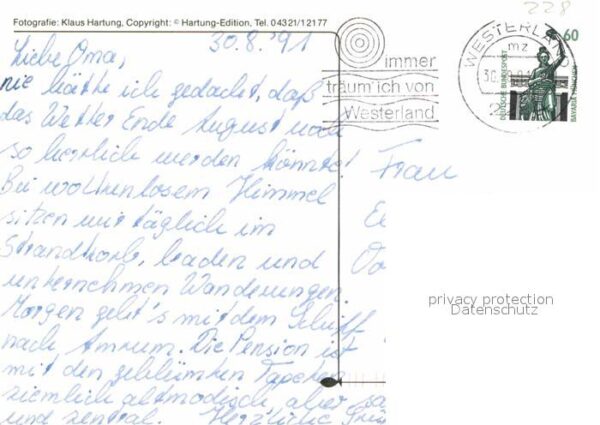 Fotografie: Klaus Hartung, Copyright: © Hartung-Edition, Tel. 04321/12177
228
30.8.'91
Liebe Oma,
nie hätte ich gedacht, daß
das Wetter Ende August noch
so herrlich werden könnte!
Bei wolkenlosem Himmel
sitzen wir täglich im
Strandkorb, baden und
unternehmen Wanderungen.
Morgen geht's mit dem Schiff
nach Amrum. Die Pension ist
mit den geblümten Tapeten
ziemlich altmodisch, aber
und zentral. Herzliche
immer
träum ich von
Westerland
WESTERLAND
mz
60
DEUTSCHE BUNDESPOST
BAVARIA MÜNCHEN
Frau
privacy protection
Datenschutz